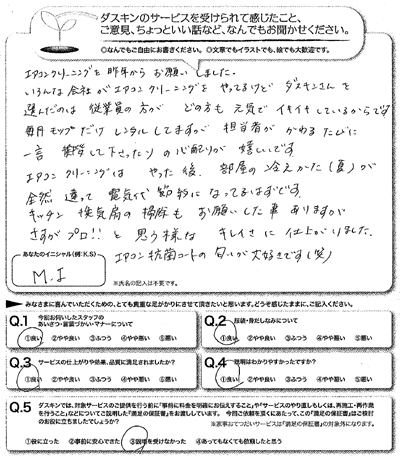 ダスキンのサービスを受けられて感じたこと、
ご意見、ちょっといい話など、なんでもお聞かせください。
◎なんでもご自由にお書きください。◎文章でもイラストでも、絵でも大歓迎です。
エアコンクリーニングを昨年からお願いしました。
いろんな会社がエアコンクリーニングをやってるけど ダスキンさんを
選んだのは 従業員の方が どの方も 元気で イキイキしているからです
毎月モップだけ レンタルしてますが 担当者が かわるたびに
一言 挨拶して下さったりの心配りが 嬉しいです。
エアコンクリーニングは やった後、部屋の冷えかた(夏)が
全然 違って 電気代 節約に なってるはずです。
キッチン 換気扇の掃除も お願いした事 ありますが
さすがプロ!! と 思う様な キレイさに 仕上がりました。
エアコン抗菌コートの 匂いが大好きです(笑)
あなたのイニシャル(例:K.S)
M.I
※氏名の記入は不要です。
みなさまに喜んでいただくための、とても貴重な足がかりにさせて頂きたいと思います。どうぞ感じたままに、ご記入ください。
Q.1 今回お伺いしたスタッフの
あいさつ・言葉づかい・マナーについて
①良い ②やや良い ③ふつう ④やや悪い ⑤悪い
Q.2 服装・身だしなみについて
①良い ②やや良い ③ふつう ④やや悪い ⑤悪い
Q.3 サービスの仕上がりや効果、品質に満足されましたか?
①良い ②やや良い ③ふつう ④やや悪い ⑤悪い
Q.4 説明はわかりやすかったですか?
①良い ②やや良い ③ふつう ④やや悪い ⑤悪い
Q.5 ダスキンでは、対象サービスのご提供を行う前に「事前に料金を明確にお伝えすること」や「サービスのやり直しもしくは、再施工・再作業
を行うこと」などについてご説明した「満足の保証書」をお渡ししています。 今回ご依頼を頂くにあたって、この「満足の保証書」はご検討
のお役に立ちましたでしょうか?
※家事おてつだいサービスは「満足の保証書」の対象外になります。
①役に立った ②事前に安心できた ③説明を受けなかった ④あってもなくても依頼したと思う